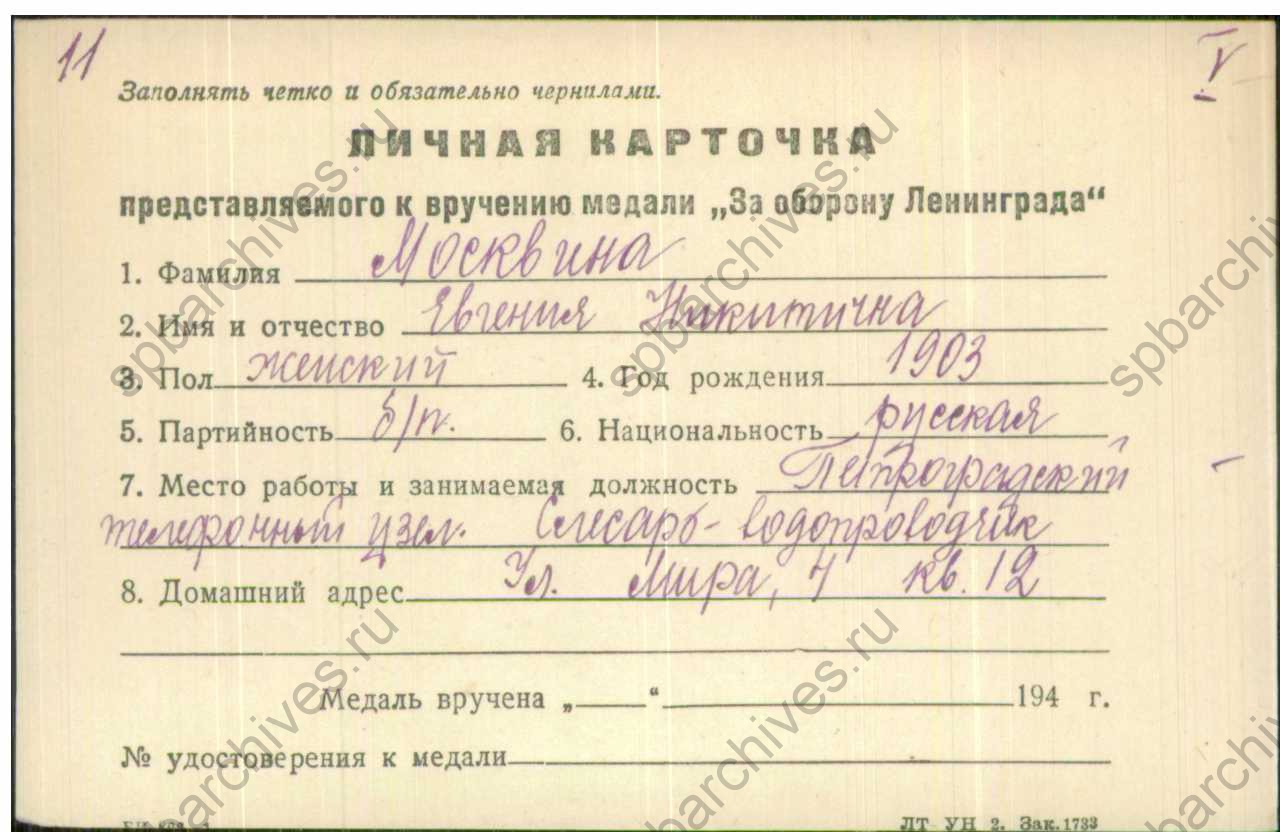 11
V
Заполнять четко и обязательно чернилами.
ЛИЧНАЯ КАРТОЧКА
представляемого к вручению медали „За оборону Ленинграда“
1. Фамилия Москвина
2. Имя и отчество Евгения Никитична
3. Пол женский 4. Год рождения 1903
5. Партийность б/п. 6. Национальность русская
7. Место работы и занимаемая должность Петроградский
телефонный узел. Слесарь-водопроводчик
8. Домашний адрес Ул. Мира, 7 кв. 12
Медаль вручена „ “ 194 г.
№ удостоверения к медали
ЛТ УН 2. Зак. 1733
spbarchives.ru